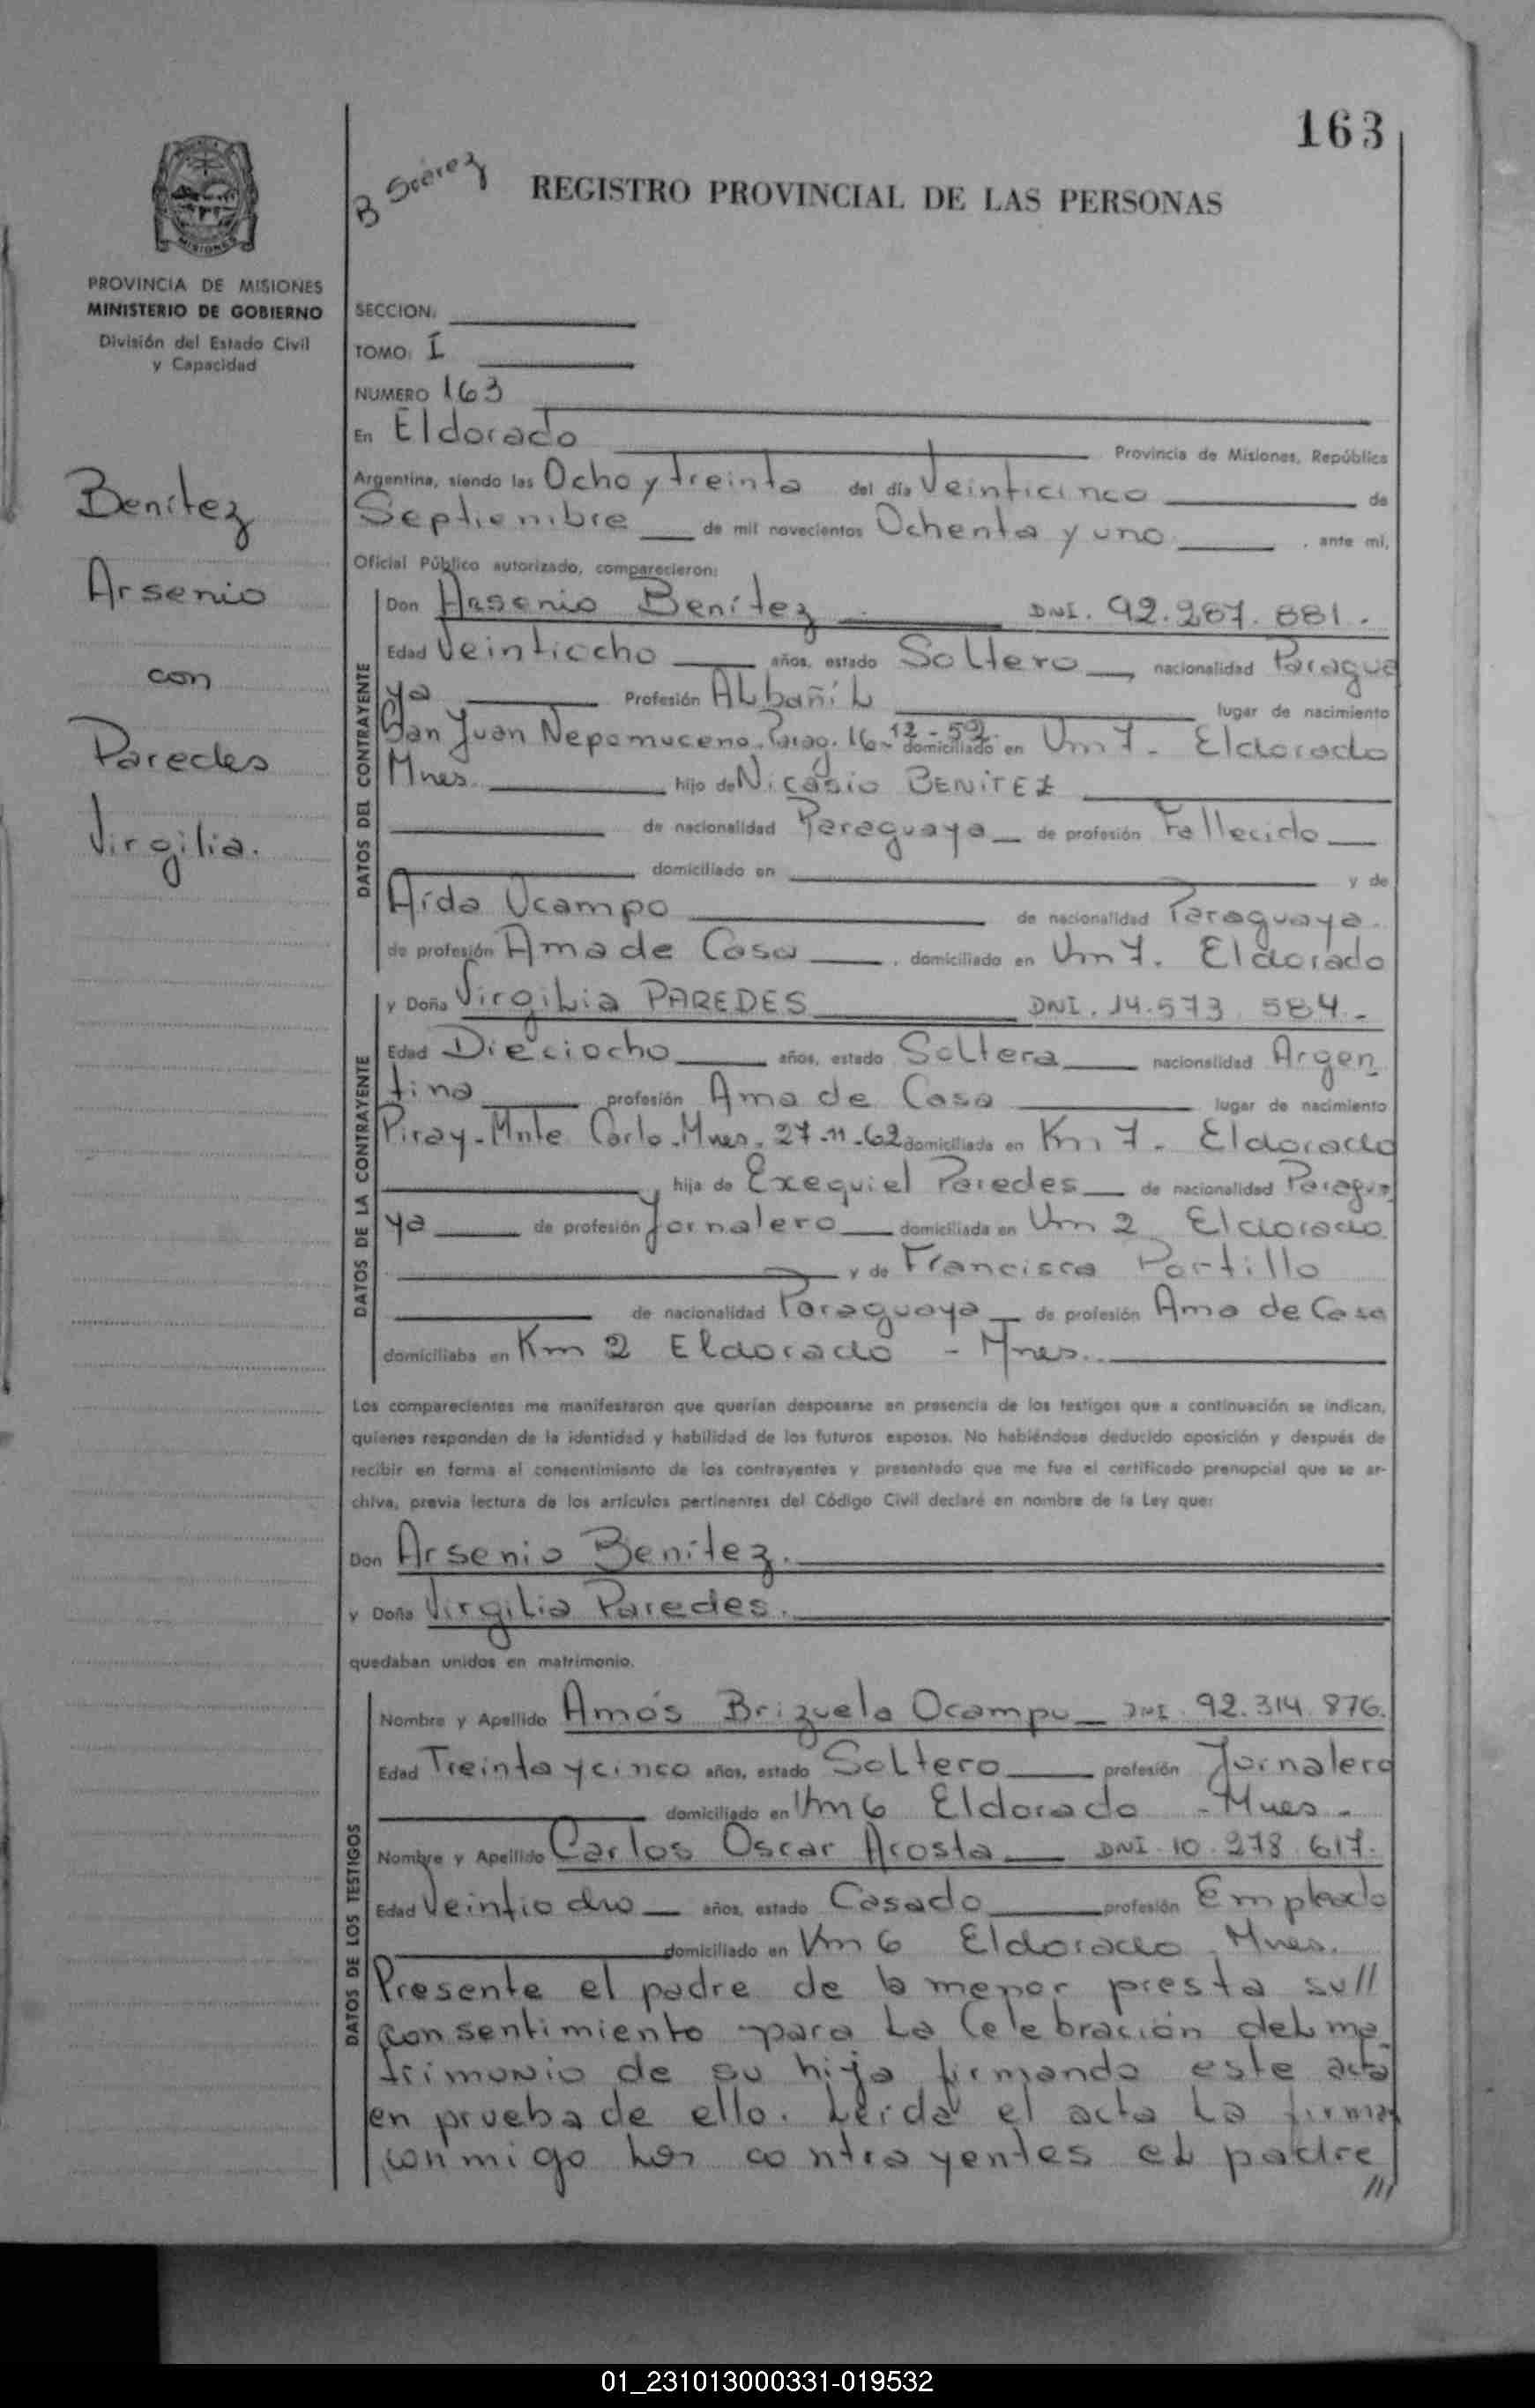 163
B Suárez
REGISTRO PROVINCIAL DE LAS PERSONAS
MISIONES
PROVINCIA DE MISIONES
MINISTERIO DE GOBIERNO
División del Estado Civil
y Capacidad
Benítez
Arsenio
con
Paredes
Virgilia.
SECCION:
TOMO: I
NUMERO 163
En Eldorado Provincia de Misiones, República
Argentina, siendo las Ocho y treinta del día Veinticinco de
Septiembre de mil novecientos Ochenta y uno , ante mi,
Oficial Público autorizado, comparecieron:
DATOS DEL CONTRAYENTE
Don Arsenio Benítez DNI. 92.287.881.
Edad Veintiocho años, estado Soltero, nacionalidad Paragua
ya Profesión Albañil lugar de nacimiento
San Juan Nepomuceno. Parag. 16-12-52. domiciliado en Km 7. Eldorado
Mnes. hijo de Nicasio BENITEZ
de nacionalidad Paraguaya de profesión Fallecido
domiciliado en y de
Aída Ocampo de nacionalidad Paraguaya.
de profesión Ama de Casa , domiciliado en Km 7. Eldorado
DATOS DE LA CONTRAYENTE
y Doña Virgilia PAREDES DNI. 14.573 584.-
Edad Dieciocho años, estado Soltera nacionalidad Argen
tina profesión Ama de Casa lugar de nacimiento
Piray-Mnte Carlo-Mnes. 27-11-62 domiciliada en Km 7. Eldorado
hija de Exequiel Paredes de nacionalidad Paragua
ya de profesión Jornalero domiciliada en Km 2 Eldorado
y de Francisca Portillo
de nacionalidad Paraguaya de profesión Ama de Casa
domiciliaba en Km 2 Eldorado - Mnes.
Los comparecientes me manifestaron que querían desposarse en presencia de los testigos que a continuación se indican,
quienes responden de la identidad y habilidad de los futuros esposos. No habiéndose deducido oposición y después de
recibir en forma el consentimiento de los contrayentes y presentado que me fue el certificado prenupcial que se ar-
chiva, previa lectura de los artículos pertinentes del Código Civil declaré en nombre de la Ley que:
Don Arsenio Benítez.
y Doña Virgilia Paredes.
quedaban unidos en matrimonio.
DATOS DE LOS TESTIGOS
Nombre y Apellido Amós Brizuela Ocampo DNI. 92.314.876.
Edad Treinta y cinco años, estado Soltero profesión Jornalero
domiciliado en Km 6 Eldorado - Mnes -
Nombre y Apellido Carlos Oscar Acosta DNI. 10.278.617.
Edad Veintiocho años, estado Casado profesión Empleado
domiciliado en Km 6 Eldorado, Mnes.
Presente el padre de la menor presta su//
consentimiento para la Celebración del ma
trimonio de su hija firmando este acta
en prueba de ello. Leída el acta la firman
conmigo los contrayentes el padre
///
01_231013000331-019532